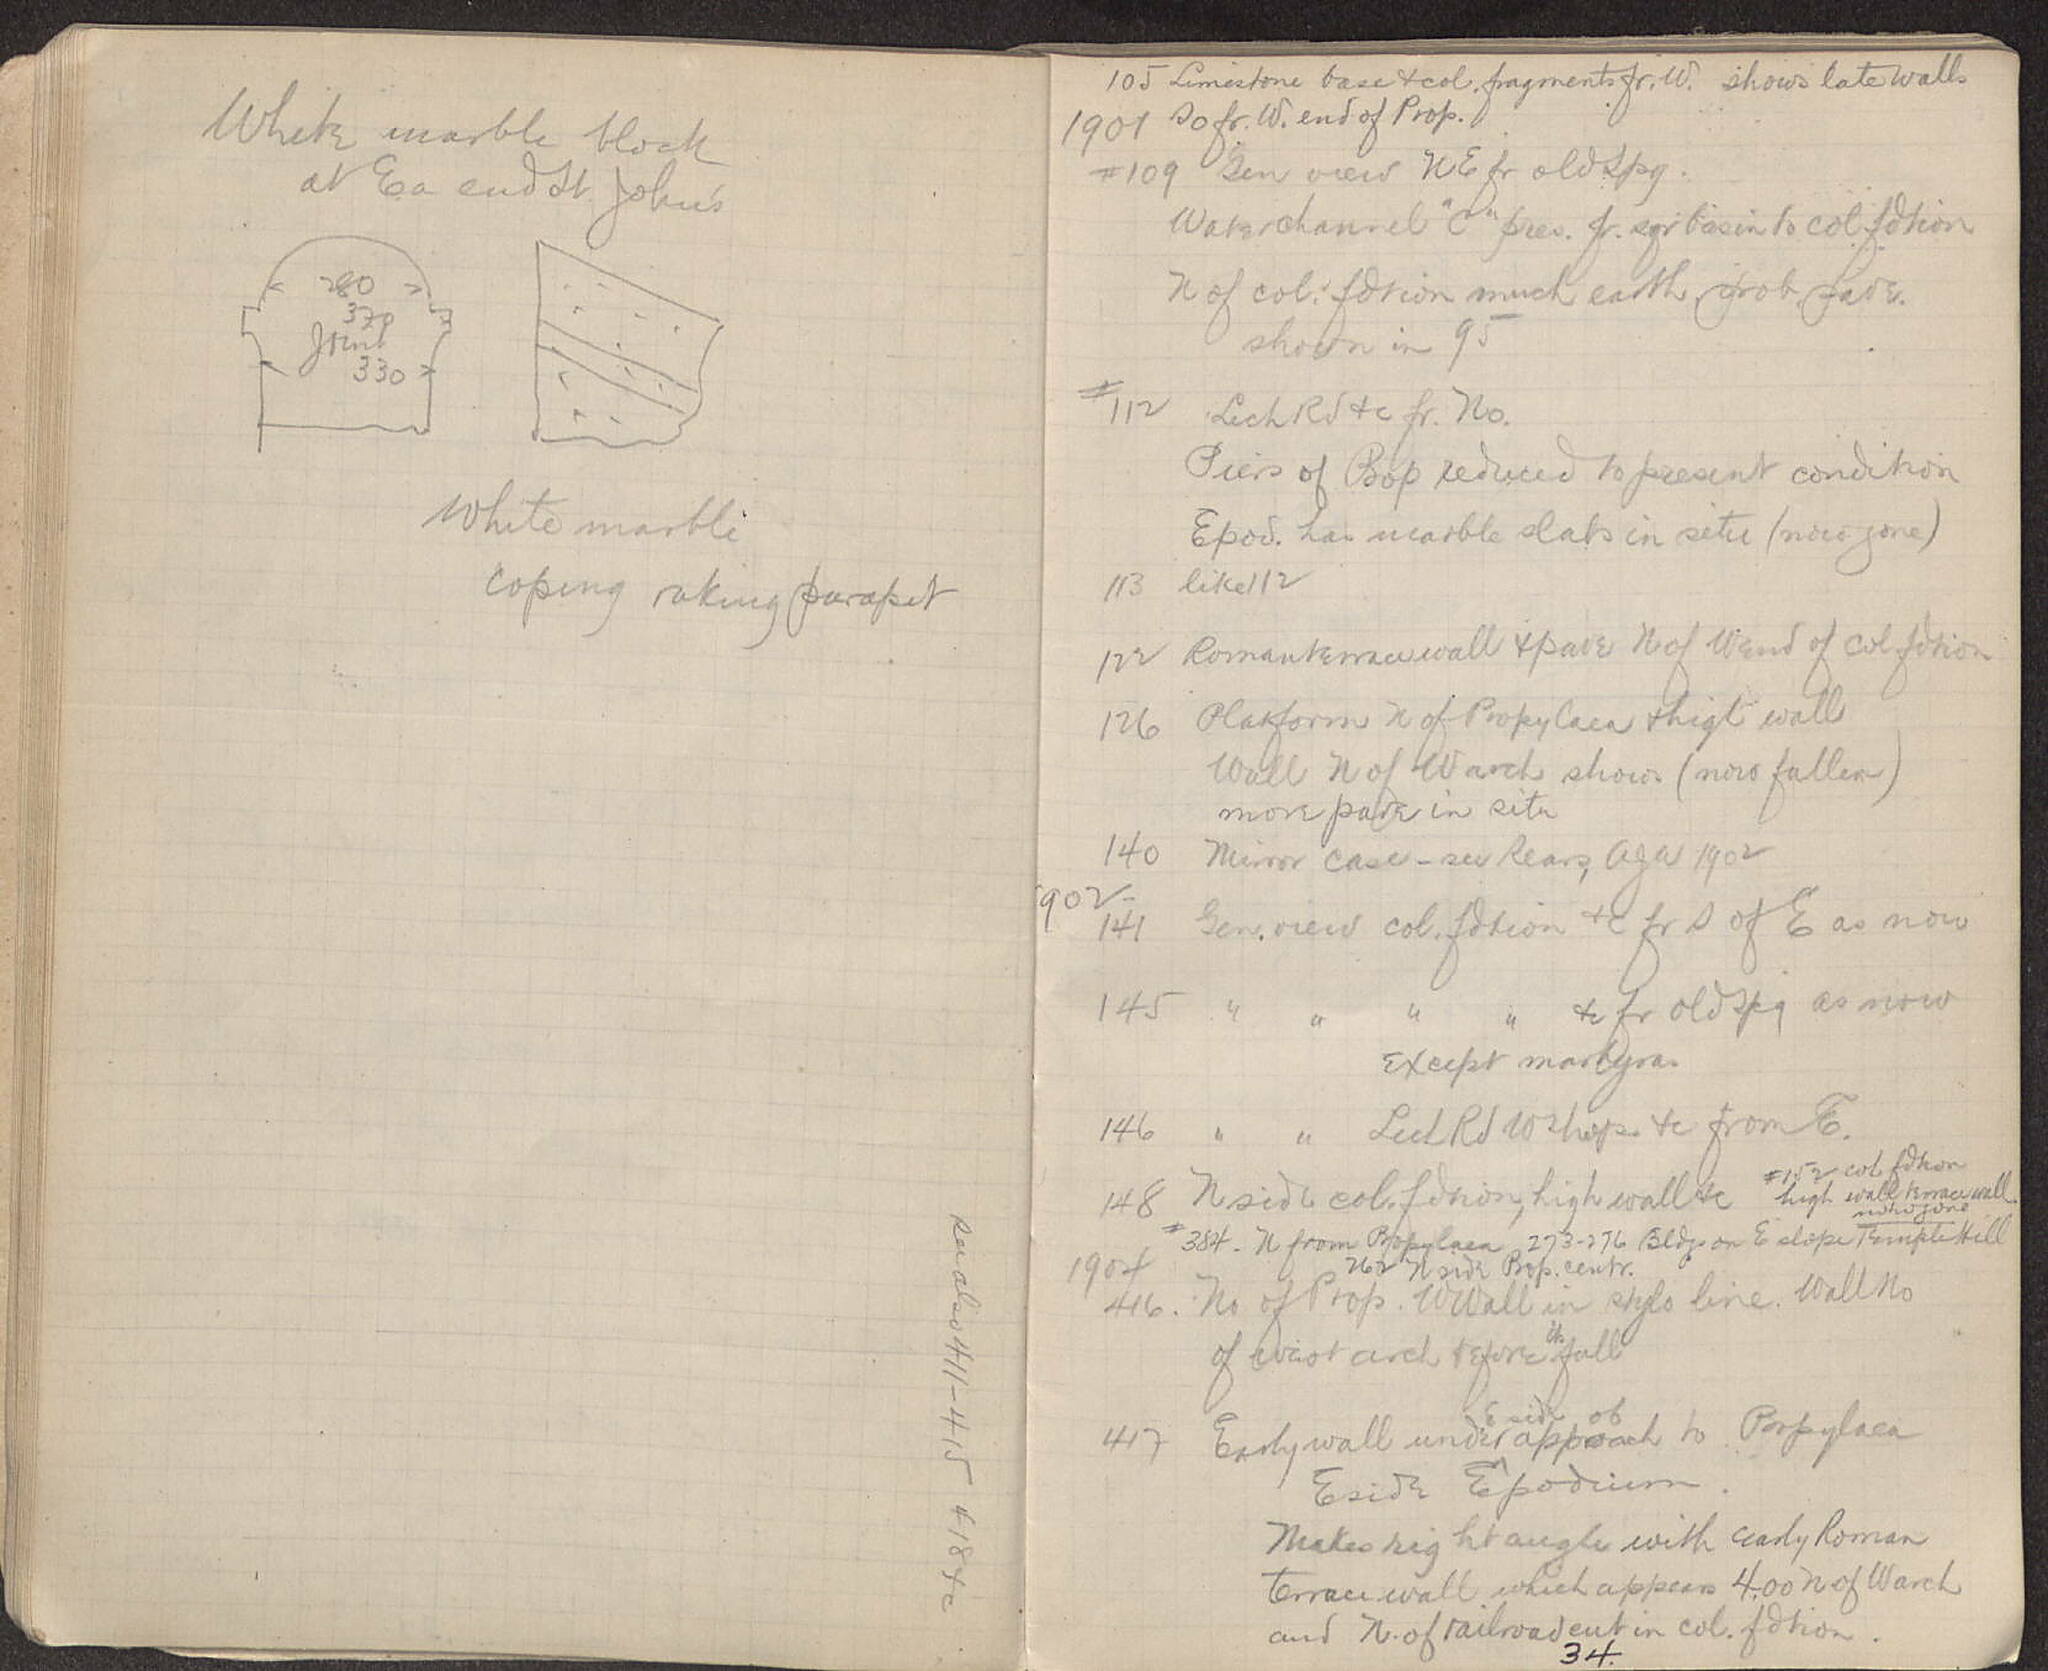 White marble block
at Ea end St. John's
280
370
Joint
330
White marble
coping raking parapet
See also 411-415 418 &c
105 Limestone base & col. fragments fr. W. shows late walls
1901 So fr. W. end of Prop.
#109 Gen view NE fr old Spg.
Water channel "C" pres. fr. sqr basin to col. fdtion
N of col. fdtion much earth, prob. pave.
shown in 95
#112 Lech Rd &c fr. No.
Piers of Prop reduced to present condition
E pod. has marble slabs in situ (now gone)
113 like 112
122 Roman terrace wall & pave N of W end of col fdtion
126 Platform N of Propylaea & high wall
Wall N of W arch shows (now fallen)
more pave in situ
140 Mirror case - see Sears, AJA 1902
1902-
141 Gen. view col. fdtion &c fr S of E as now
145 " " " " &c fr old Spg as now
Except martyra.
146 " " Lech Rd W shops &c from E.
148 N side col. fdtion, high wall &c
#152 col fdtion
high wall terrace wall
now gone
#384 - N from Propylaea 273-276 Bldgs on E slope Temple Hill
1904 262 N side Prop. centr.
416. No of Prop. W Wall in stylo line. Wall No
of west arch before its fall
417 Early wall under E side of approach to Propylaea
E side E podium.
Makes right angle with early Roman
terrace wall which appears 4.00 N of W arch
and N. of railroad cut in col. fdtion.
34.